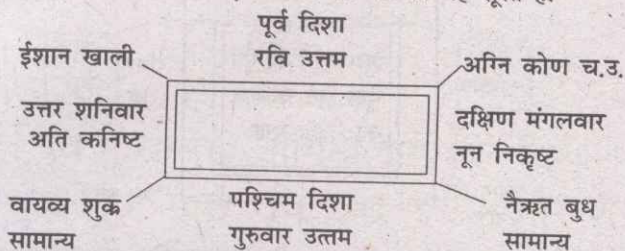 पूर्व दिशा
ईशान खाली
रवि उत्तम
अग्नि कोण च.उ.
उत्तर शनिवार
अति कनिष्ट
दक्षिण मंगलवार
नून निकृष्ट
वायव्य शुक्र
सामान्य
पश्चिम दिशा
गुरुवार उत्तम
नैऋत बुध
सामान्य